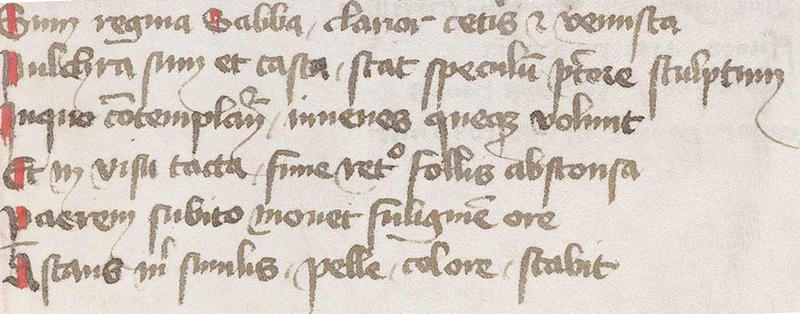 Sum regina Sabba, clarior cetis et venusta
Pulchra sum et casta, stat speculū pectore sculptum
Inquo cōtemplan, iuuenes queqz volunt
Et in visu tacta fune retro follis absconsa
Paerem subito mouet fuligine ore
Astans in similis, pelle, colore, stabit